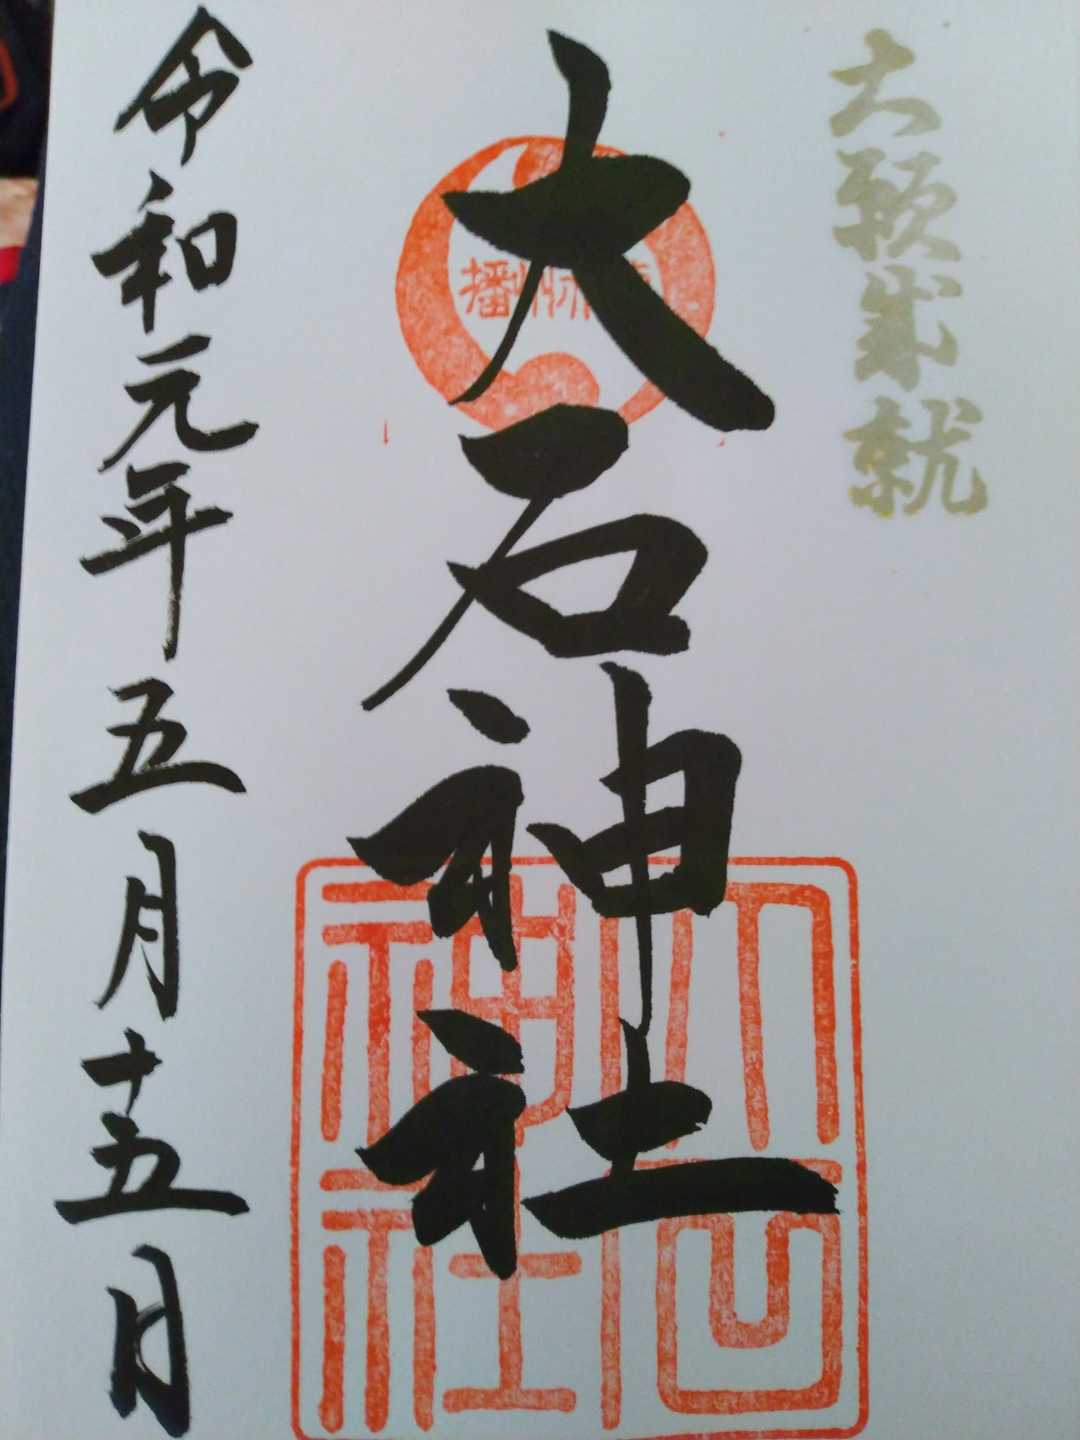 大願成就
大石神社
播州赤穂
大石神社
令和元年五月十五日